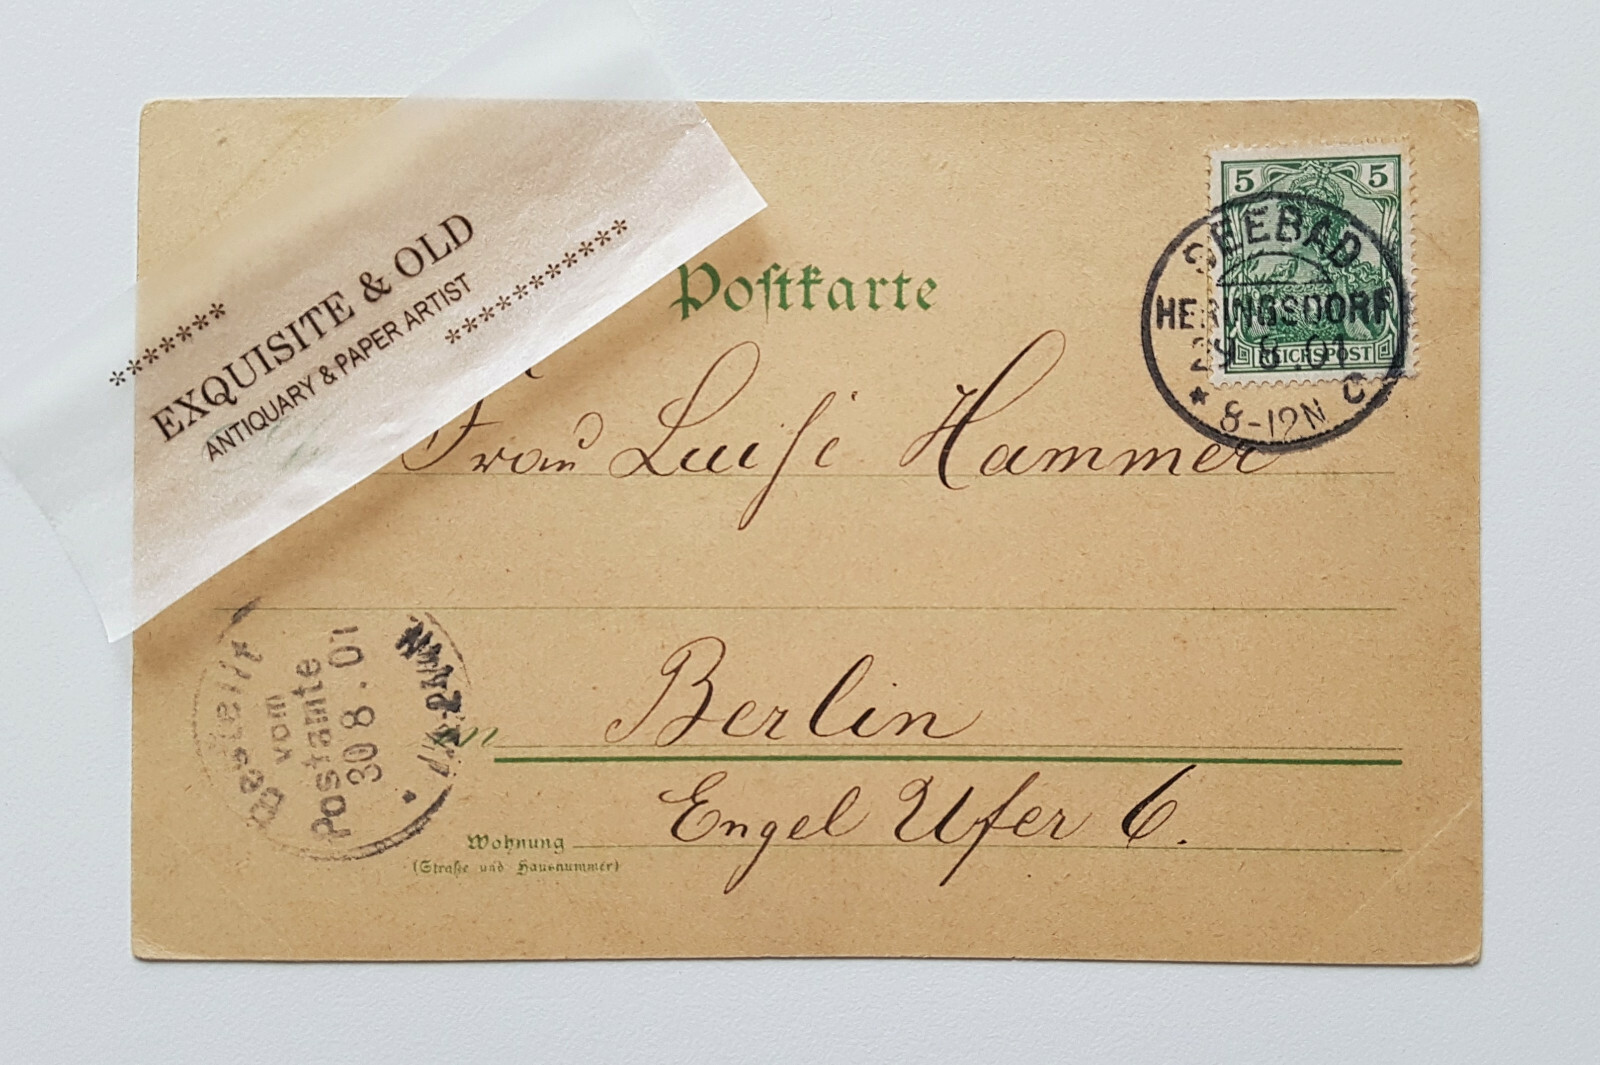 *******
EXQUISITE & OLD
ANTIQUARY & PAPER ARTIST
***********
Postkarte
5 5
REICHSPOST
SEEBAD
HERINGSDORF
29.8.01
* 8-12N C
Frau Luise Hammer
in Berlin
Engel Ufer 6.
Wohnung
(Straße und Hausnummer)
Bestellt
vom
Postamte
30 8.01